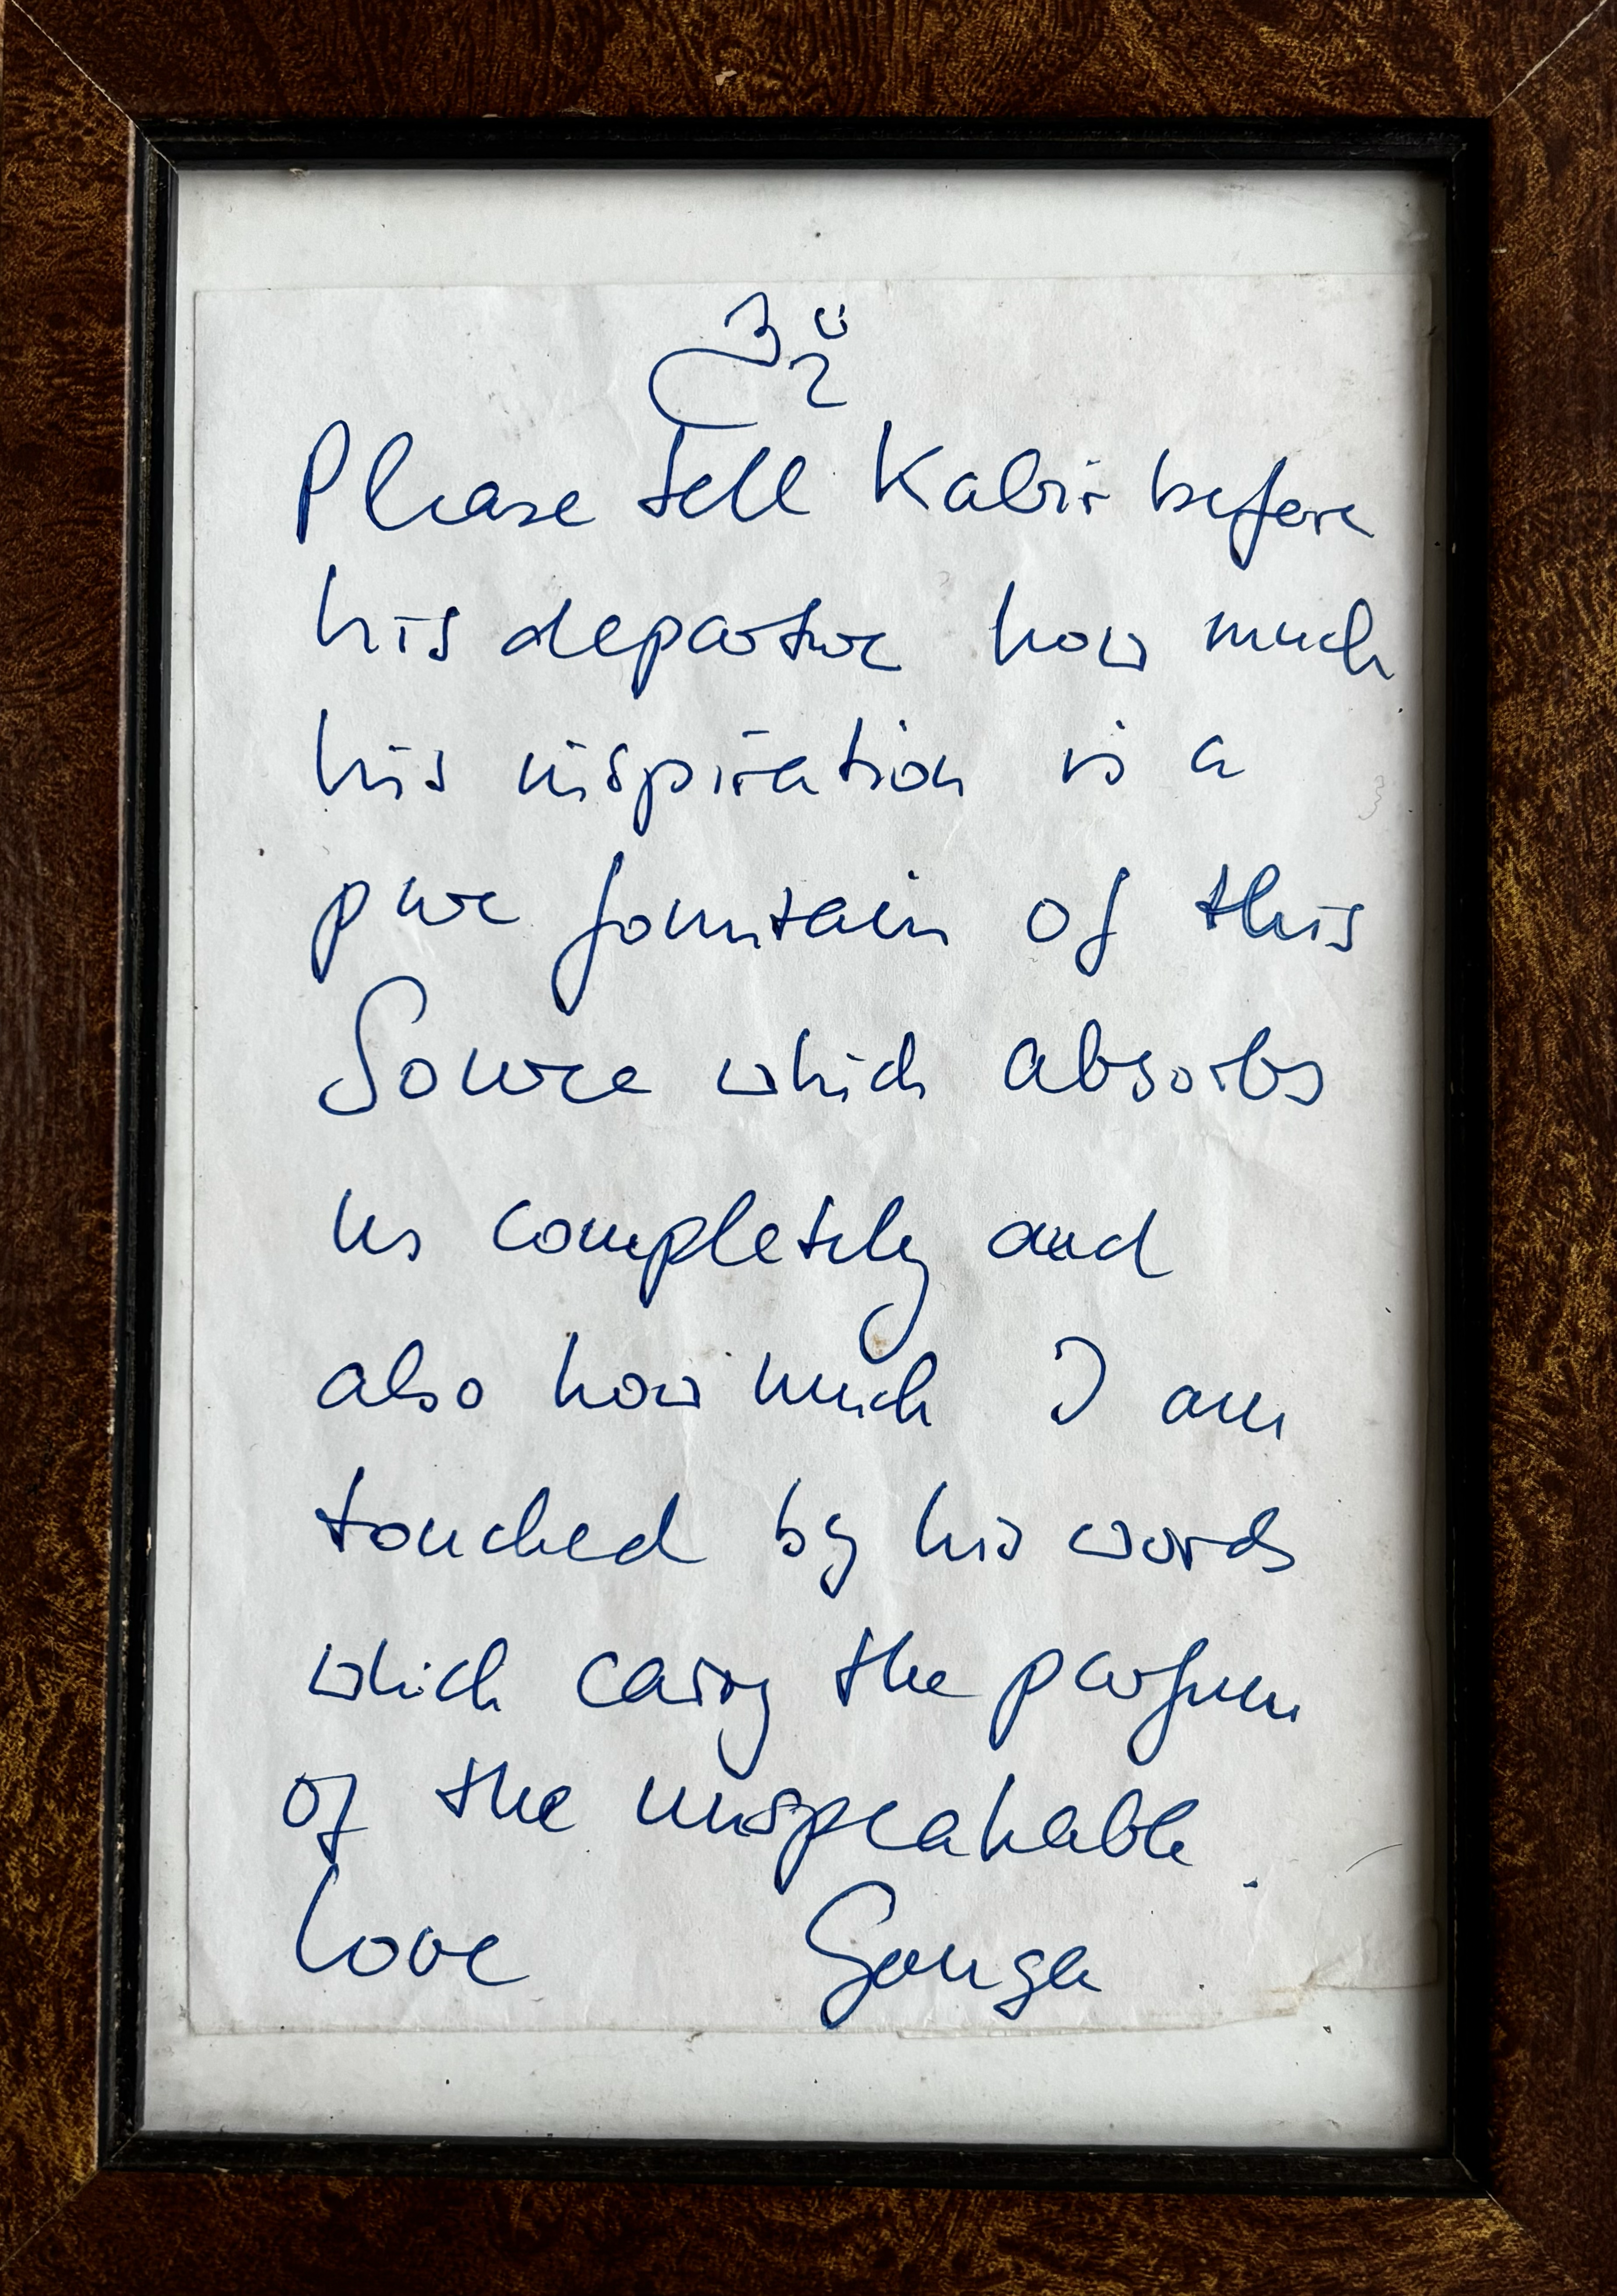 ॐ
Please tell Kabir before
his departure how much
his inspiration is a
pure fountain of this
Source which absorbs
us completely and
also how much I am
touched by his words
which carry the parfum
of the unspeakable.
Love Ganga